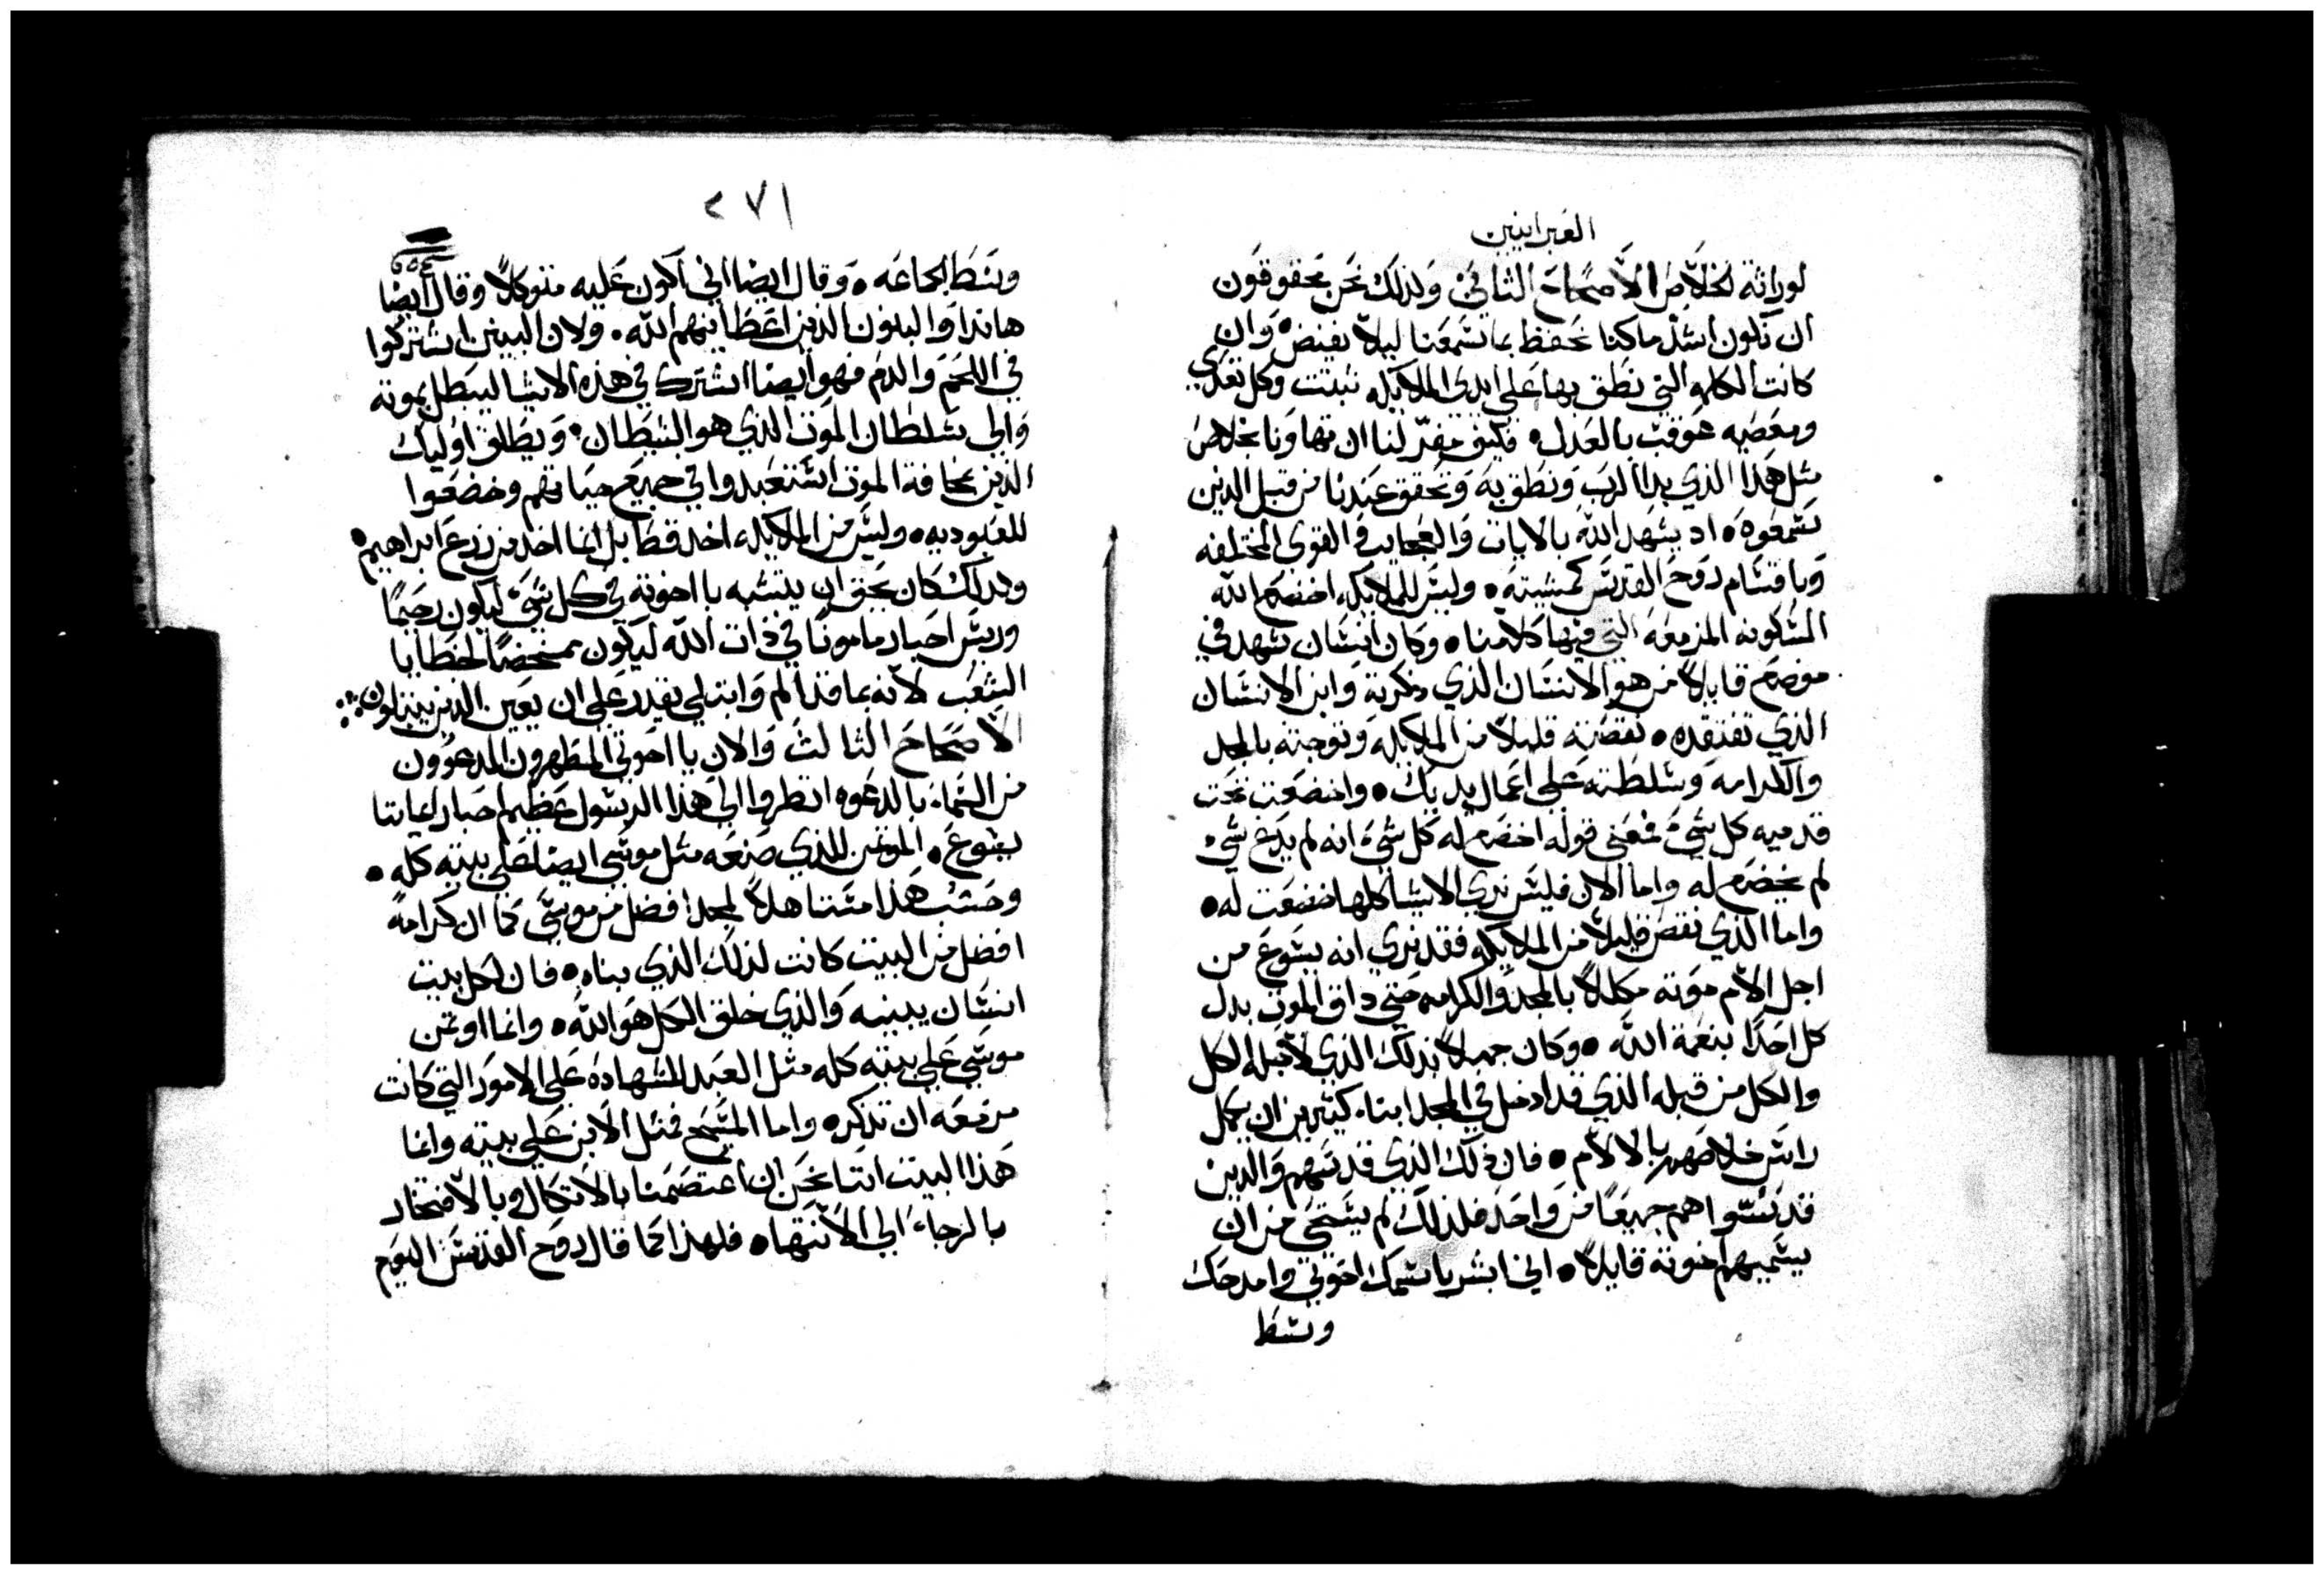 العبرانيين
لوراثة الخلاص الاصحاح الثاني ولذلك نحن محقوقون
ان نكون اشد ما كنا تحفظ بما سمعنا ليلا نفيض وان
كانت الكلمه التي نطق بها على ايدي الملايكه ثبتت وكل تعدي
ومعصيه عوقبت بالعدل فكيف مفر لنا ان تهاونا بخلاص
مثل هذا الذي بدا الرب ونطق به وتحقق عندنا من قبل الدين
سمعوه اد يشهد الله بالايات والعجايب والقوي المختلفه
وباقتسام روح القدس كمشيته وليس للملايكه اخضع الله
المسكونه المزمعه التي فيها كلامنا وكان انسان شهد في
موضع قايلا من هو الانسان الذي دكرته وابن الانسان
الذي تفتقده نقصته قليلا من الملايكه وتوجته بالمجد
والكرامه وسلطته على اعمال يديك واخضعت تحت
قدميه كل شي فمعني قوله اخضع له كل شي انه لم يدع شي
لم يخضع له واما الان فليس نري الاشيا كلها خضعت له
واما الذي نقص قليلا من الملايكه فقد نري انه يسوع من
اجل الام موته مكللا بالمجد والكرامه حتي داق الموت بدل
كل احدا بنعمة الله وكان جميلا بذلك الذي لاجله الكل
والكل من قبله الذي قد ادخل في المجد ابناء كثيرين ان يكمل
راس خلاصهم بالالام فان ذلك الذي قدسهم والدين
قدسوا هم جميعا من واحد فلذلك لم يستحي من ان
يسميهم اخوته قايلا اني ابشر باسمك اخوتي وامدحك
وسط
٢٧١
وسط الجماعه وقال ايضا اني اكون عليه متوكلا وقال ايضا
هانذا والبنون الذين اعطانيهم الله ولان البنين اشتركوا
في اللحم والدم فهو ايضا اشترك في هذه الاشيا ليبطل بموته
والي سلطان الموت الذي هو الشيطان ويطلق اوليك
الذين بمخافة الموت استعبدوا في جميع حياتهم وخضعوا
للعبوديه وليس من الملايكه اخد قط بل انما اخد من زرع ابراهيم
ولدلك كان يحق ان يتشبه باخوته في كل شي ليكون رحيما
وريس احبار مامونا في ذات الله ليكون ممحصا لخطايا
الشعب لانه بما قد الم وابتلي يقدر على ان يعين الدين يبتلون
الاصحاح الثالث والان يا اخوتي المطهرون المدعوون
من السماء بالدعوه انظروا الي هذا الرسول عظيم احبار ايماننا
يسوع الموتمن للذي صنعه مثل موسي ايضا على بيته كله
وحسب هذا مستاهلا لمجد افضل من موسي كما ان كرامة
افضل من البيت كانت لذلك الذي بناه فان لكل بيت
انسان يبنيه والذي خلق الكل هو الله وانما اوتمن
موسي علي بيته كله مثل العبد للشهاده على الامور التي كانت
مزمعه ان تدكر واما المسيح فمثل الابن علي بيته وانما
هذا البيت انتا نحن ان اعتصمنا بالاتكال وبالافتخار
بالرجاء الي الانتها فلهذا كما قال روح القدس اليوم